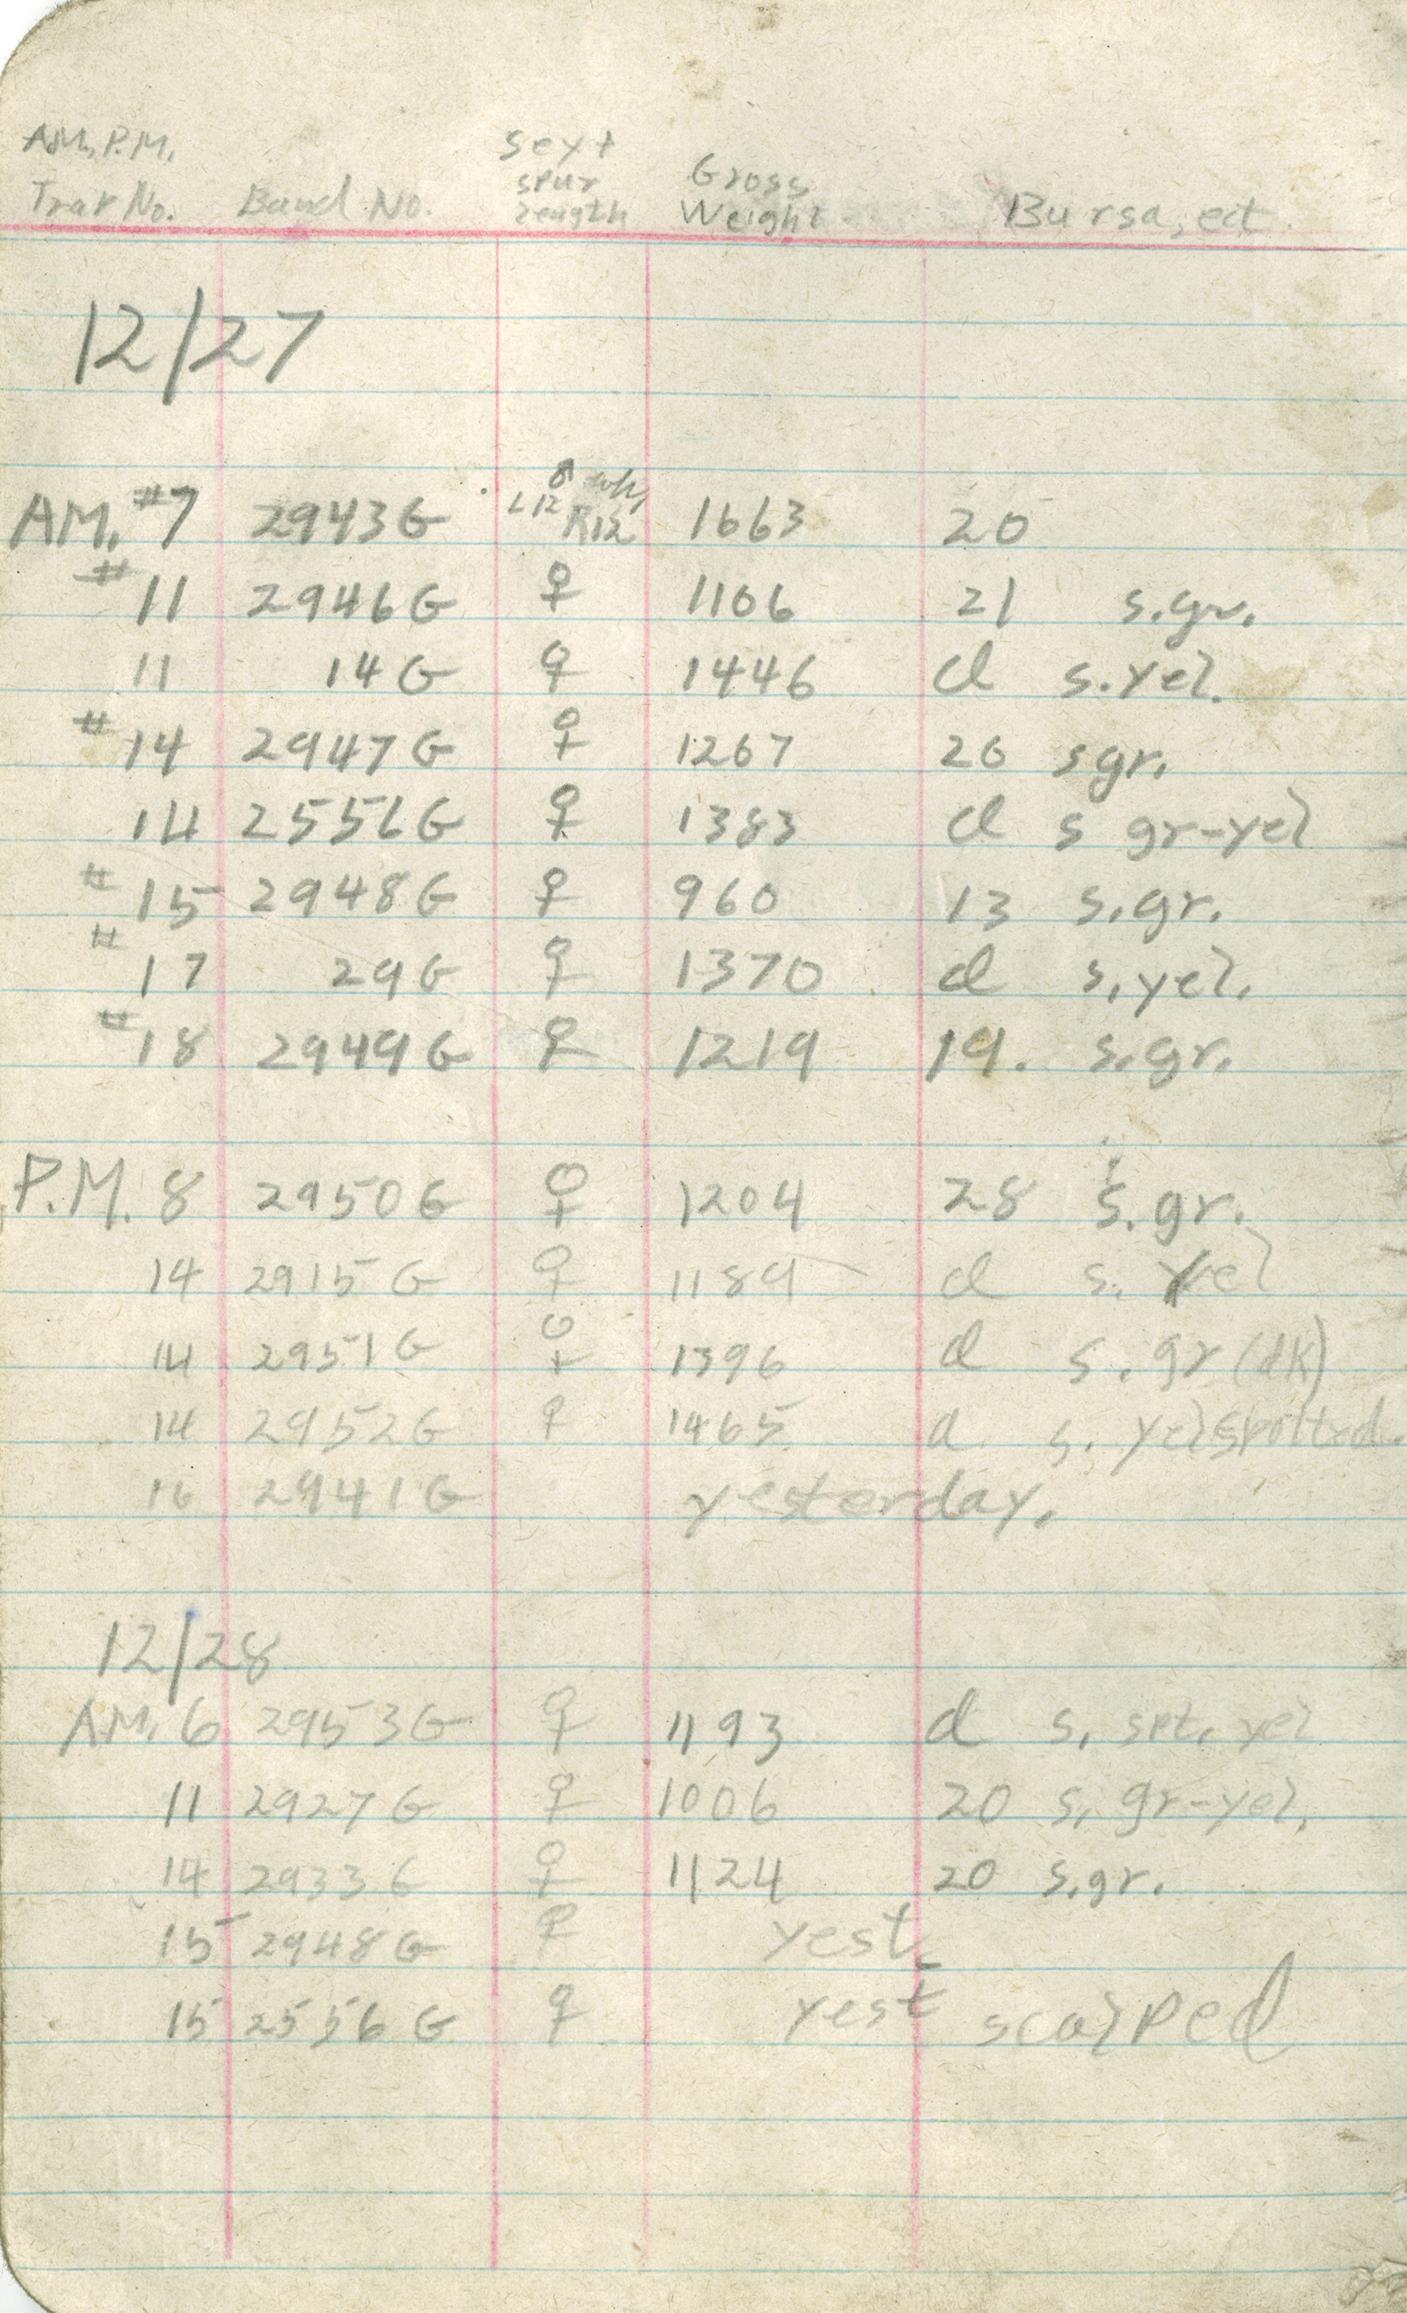 AM, P.M. Sex +
Trap No. Band No. spur length Gross Weight Bursa, ect.
12/27
♂
AM. #7 2943G L12 R12 1663 20
#11 2946G ♀ 1106 21 s.gr.
11 14G ♀ 1446 cl s.yel.
#14 2947G ♀ 1267 20 sgr.
14 2556G ♀ 1383 cl s gr-yel
#15 2948G ♀ 960 13 s.gr.
#17 29G ♀ 1370 cl s.yel.
#18 2949G ♀ 1219 19. s.gr.
P.M. 8 2950G ♀ 1204 28 s.gr.
14 2915G ♀ 1189 cl s. yel
14 2951G ♀ 1396 cl s. gr (dk)
14 2952G ♀ 1465 cl s. yel spotted.
16 2941G yesterday.
12/28
AM. 6 2953G ♀ 1193 cl s. spt. yel
11 2927G ♀ 1006 20 s, gr-yel.
14 2933G ♀ 1124 20 s.gr.
15 2948G ♀ yest.
15 2556G ♀ yest scalped